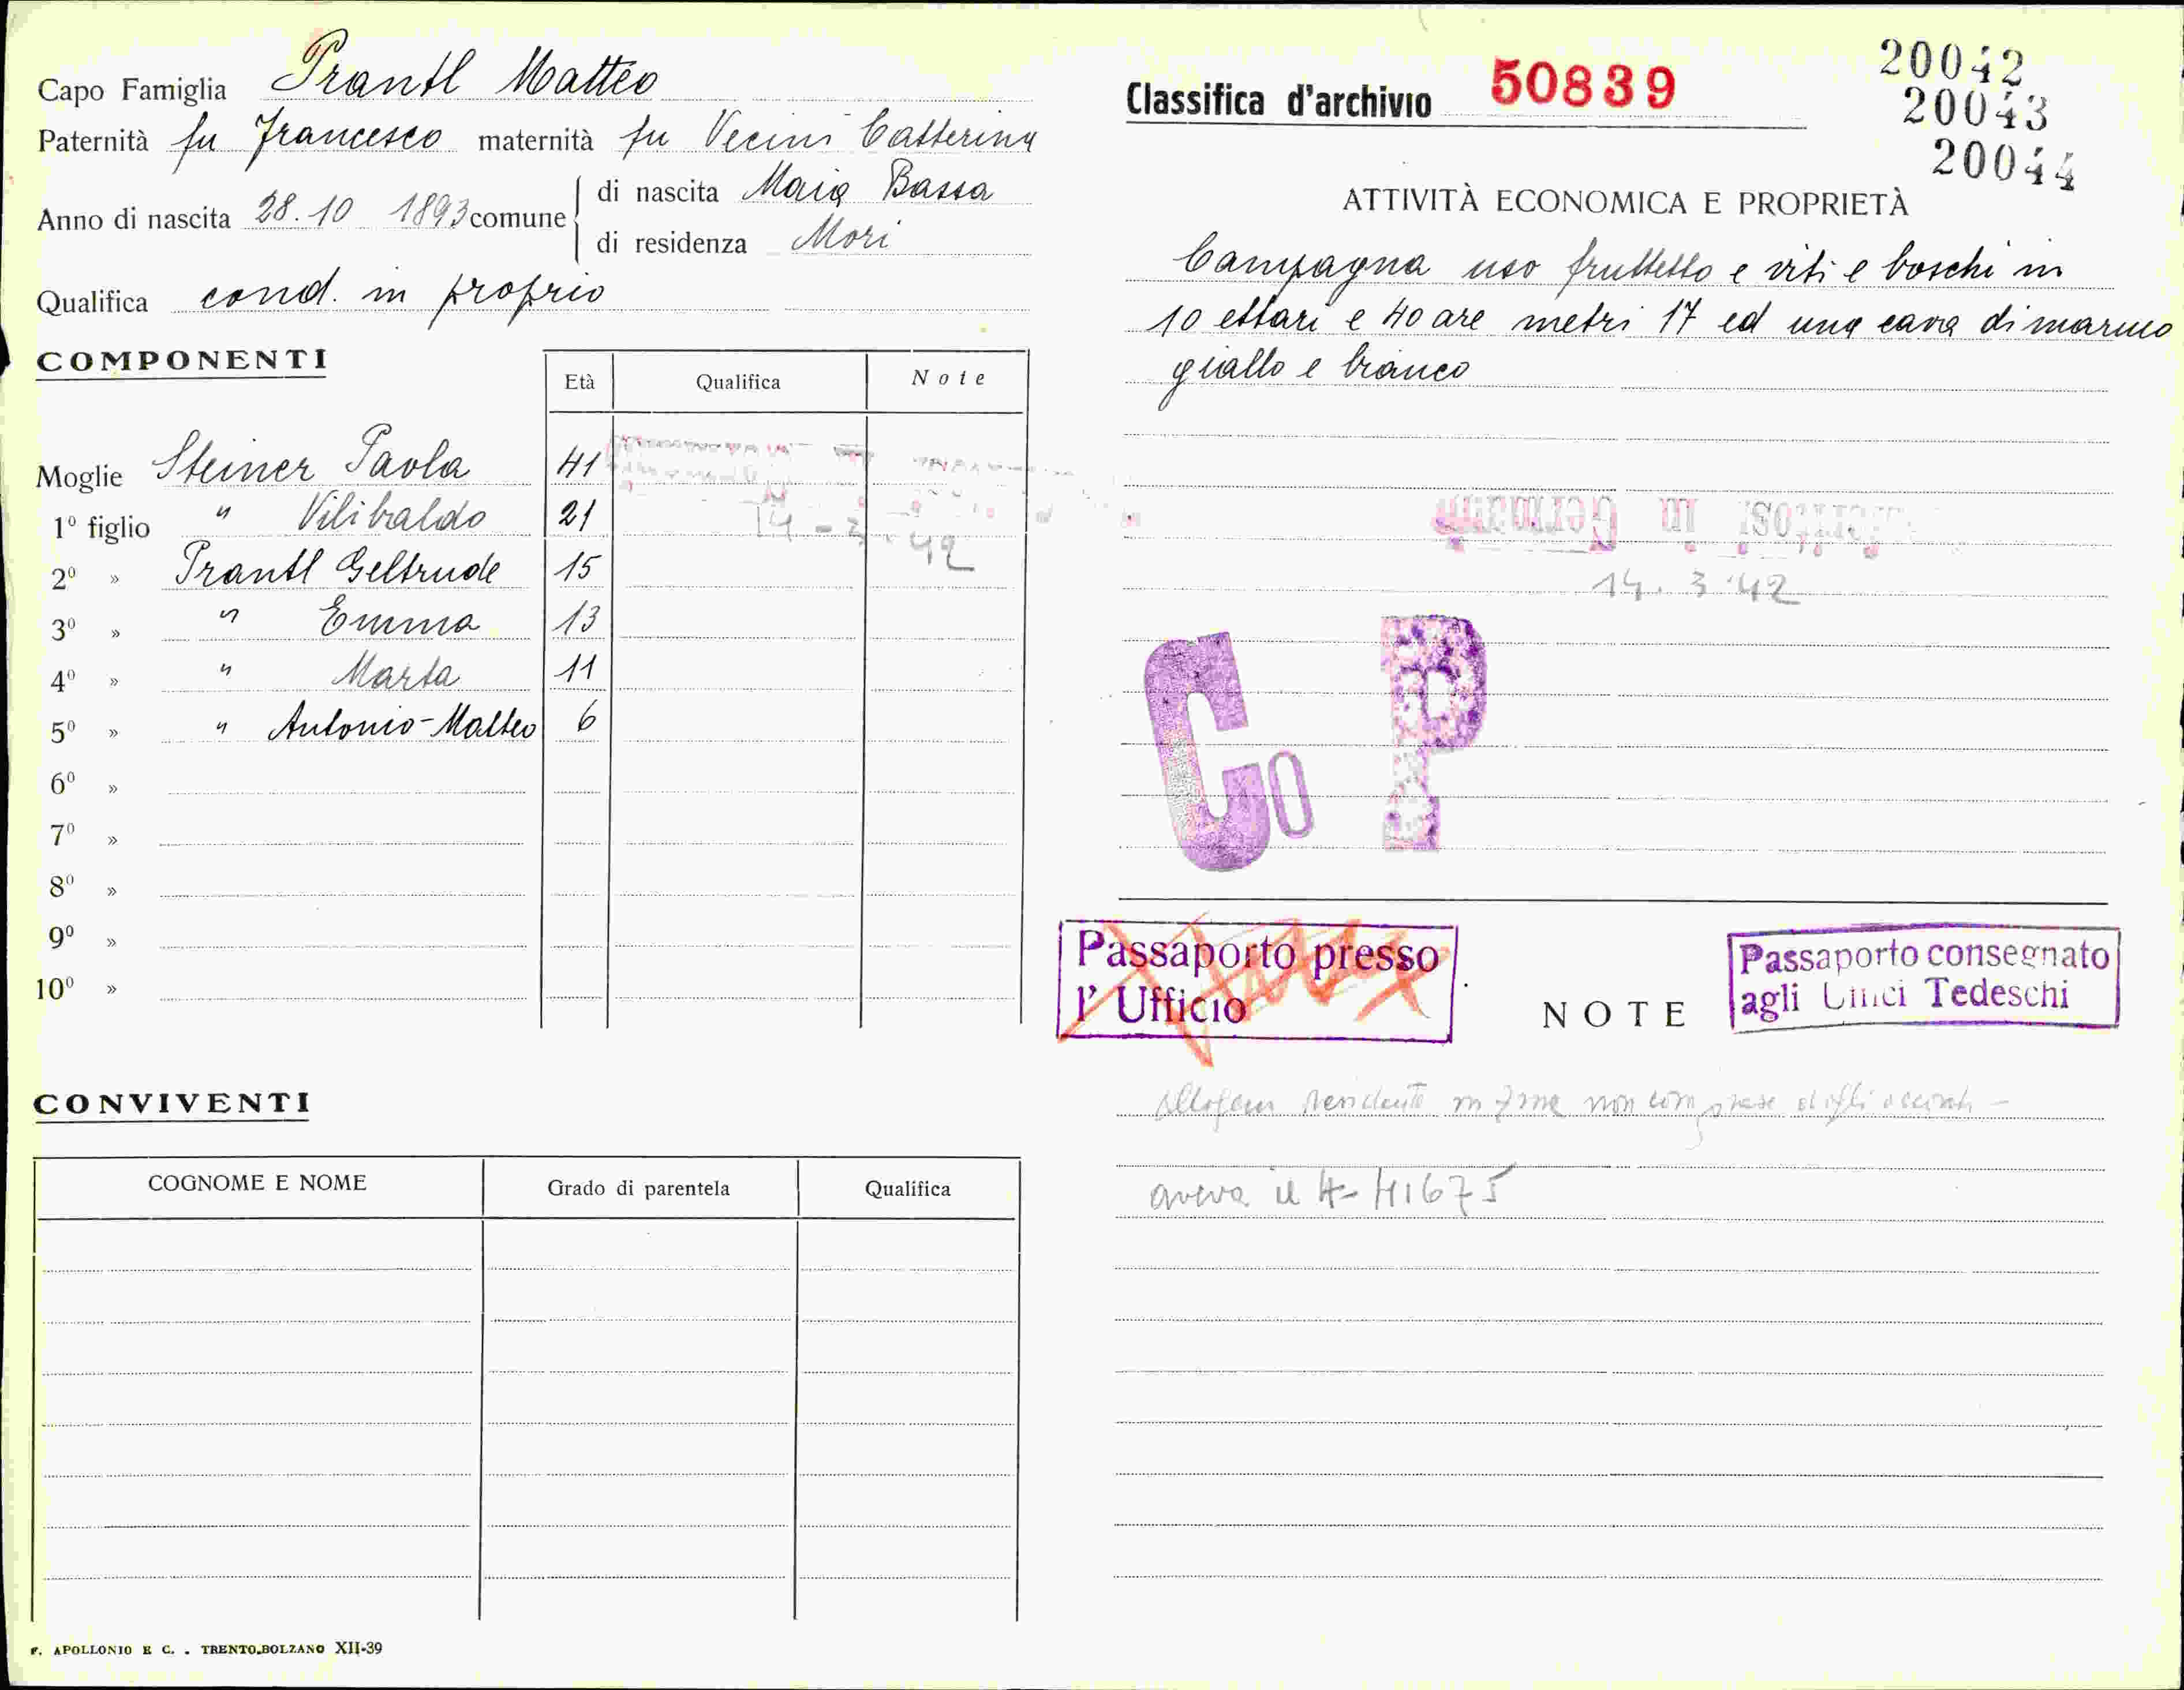 Capo Famiglia Prantl Matteo
Paternità fu Francesco maternità fu Vecini Catterina
Anno di nascita 28.10 1893 comune di nascita Maia Bassa
di residenza Mori
Qualifica cond. in proprio
COMPONENTI
Età Qualifica Note
Moglie Steiner Paola 41
1º figlio " Vilibaldo 21
14-3-42
2º » Prantl Geltrude 15
3º » " Emma 13
4º » " Marta 11
5º » " Antonio-Matteo 6
6º »
7º »
8º »
9º »
10º »
CONVIVENTI
COGNOME E NOME Grado di parentela Qualifica
F. APOLLONIO E C. . TRENTO-BOLZANO XII-39
Classifica d'archivio 50839
20042
20043
20044
ATTIVITÀ ECONOMICA E PROPRIETÀ
Campagna uso fruttetto e viti e boschi in
10 ettari e 40 are metri 17 ed una cava di marmo
giallo e bianco
in Germania
14.3.42
Co P
Passaporto presso
l' Ufficio
NOTE
Passaporto consegnato
agli Uffici Tedeschi
in zone non
aveva il A- 41675